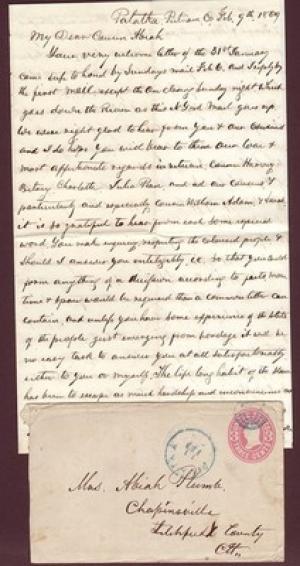 Palatka Putnam Co, Feb. 9th 1869
My Dear Cousin Abiah
Your very welcome letter of the 31st January
came safe to hand by Sundays mail Feb 6, and I reply by
the first Mail except the one
goes down the River as this
We were right glad to hear from you & our Cousins
and I do hope you will bear to them our love &
most affectionate regards in return. Cousin Henry
Betsey Charlotte Julia and all our Cousins
particularly and especially Cousin William Adam, &
it is so grateful to hear from each some especial
word. You make inquiry respecting the colored people &
Should I answer you intelligibly so that you could
form anything of a decision according to facts, more
time & space would be required than a common letter can
contain, and unless you have some experience of the state
of the people just emerging from bondage it will be
no easy task to answer you at all satisfactorily
either to you or myself. The life long habit of the
has been to escape as much hardship and inconvenience
THREE CENTS
Mrs. Abiah Plumb.
Chapinsville
Litchfield County
Ctt.